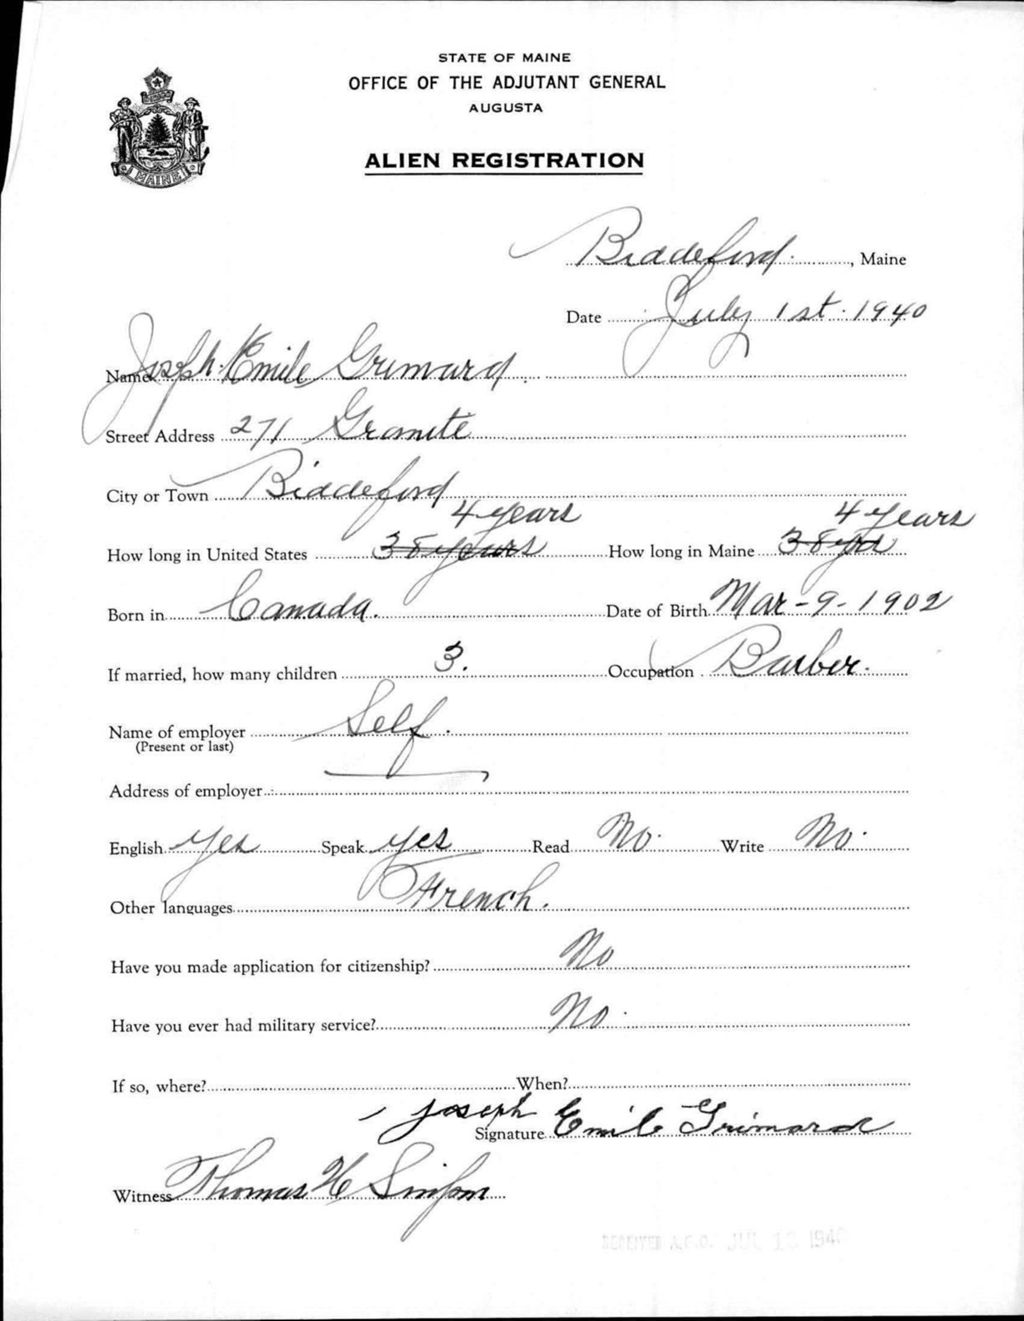 STATE OF MAINE
OFFICE OF THE ADJUTANT GENERAL
AUGUSTA
ALIEN REGISTRATION
MAINE
Biddeford, Maine
Date July 1st 1940
Name Joseph Emile Grimard
Street Address 271 Granite
City or Town Biddeford
4 years 4 years
How long in United States 38 years How long in Maine 38 yrs
Born in Canada. Date of Birth Mar-9-1902
If married, how many children 3. Occupation Barber.
Name of employer Self.
(Present or last)
Address of employer
English Yes Speak Yes Read No. Write No.
Other languages French.
Have you made application for citizenship? No
Have you ever had military service? No.
If so, where? When?
Signature Joseph Emile Grimard
Witness Thomas H Simpson
RECEIVED A.G.O. JUL 13 1940